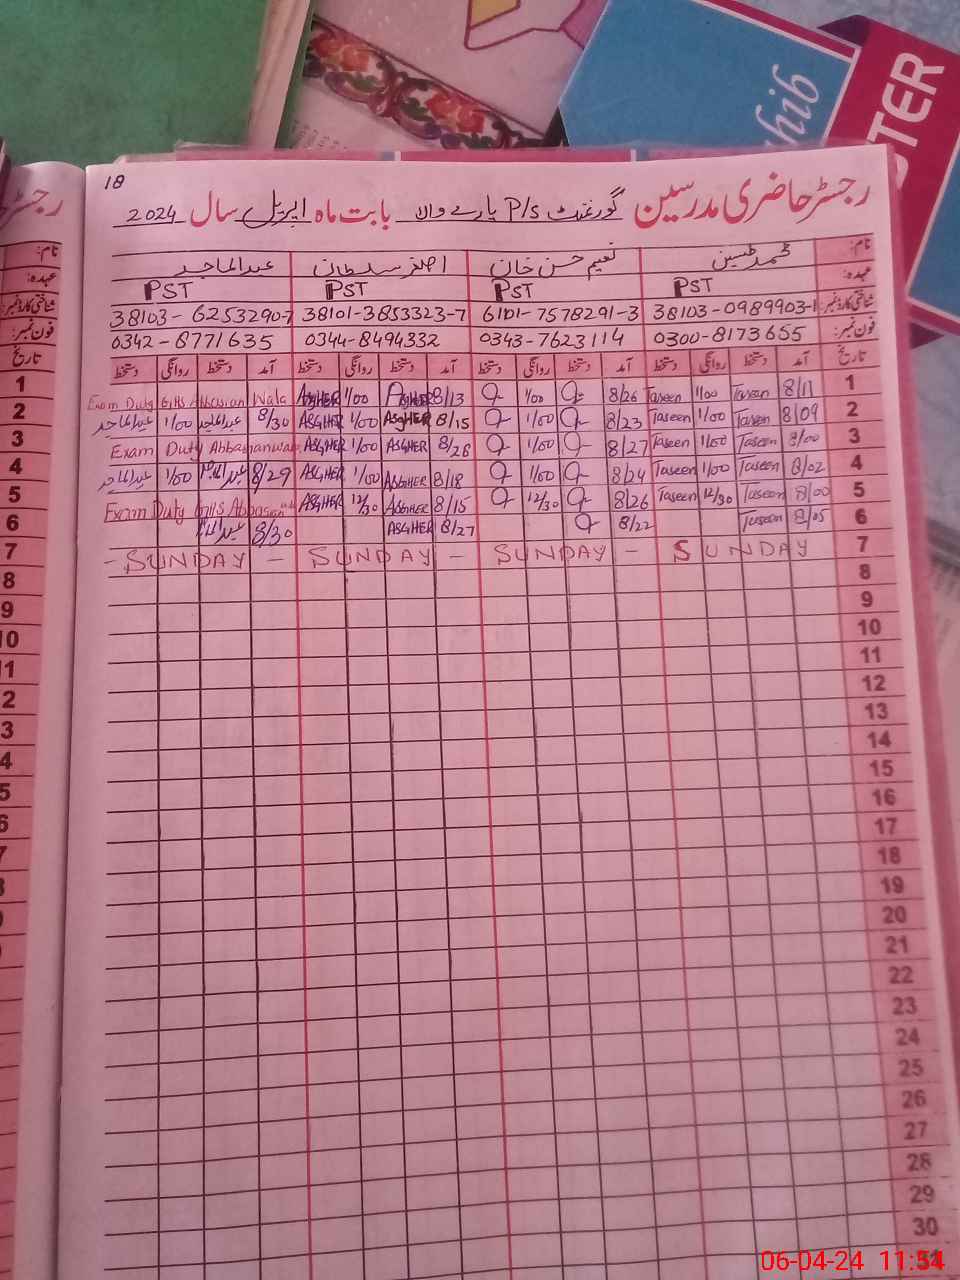 hib
STER
18
رجسٹر حاضری مدرسین گورنمنٹ P/S بارے والا بابت ماہ اپریل سال 2024
نام: محمد تحسین نعیم حسن خان اصغر سلطان عبدالماجد
عہدہ: PST PST PST PST
شناختی کارڈ نمبر: 38103-0989903-1 61101-7578291-3 38101-3853323-7 38103-6253290-7
فون نمبر: 0300-8173655 0343-7623114 0344-8494332 0342-8771635
تاریخ آمد دستخط روانگی دستخط آمد دستخط روانگی دستخط آمد دستخط روانگی دستخط آمد دستخط روانگی دستخط تاریخ
1 8/11 Taseen 1/00 Taseen 8/26 1/00 8/13 ASGHER 1/00 ASGHER Exam Duty GHS Abbasian Wala 1
2 8/09 Taseen 1/00 Taseen 8/23 1/00 8/15 ASGHER 1/00 ASGHER 8/30 عبدالماجد 1/00 عبدالماجد 2
3 8/00 Taseen 1/00 Taseen 8/27 1/00 8/28 ASGHER 1/00 ASGHER Exam Duty Abbasianwala 3
4 8/02 Taseen 1/00 Taseen 8/24 1/00 8/18 ASGHER 1/00 ASGHER 8/29 عبدالماجد 1/00 عبدالماجد 4
5 8/00 Taseen 12/30 Taseen 8/26 12/30 8/15 ASGHER 12/30 ASGHER Exam Duty GHS Abbasian 5
6 8/05 Taseen 8/22 8/27 ASGHER 8/30 عبدالماجد 6
7 SUNDAY SUNDAY - SUNDAY - - SUNDAY - 7
8 8
9 9
10 10
11 11
12 2
13 3
14 4
15 5
16 6
17 7
18
19
20
21
22
23
24
25
26
27
28
29
30
31
06-04-24 11:54